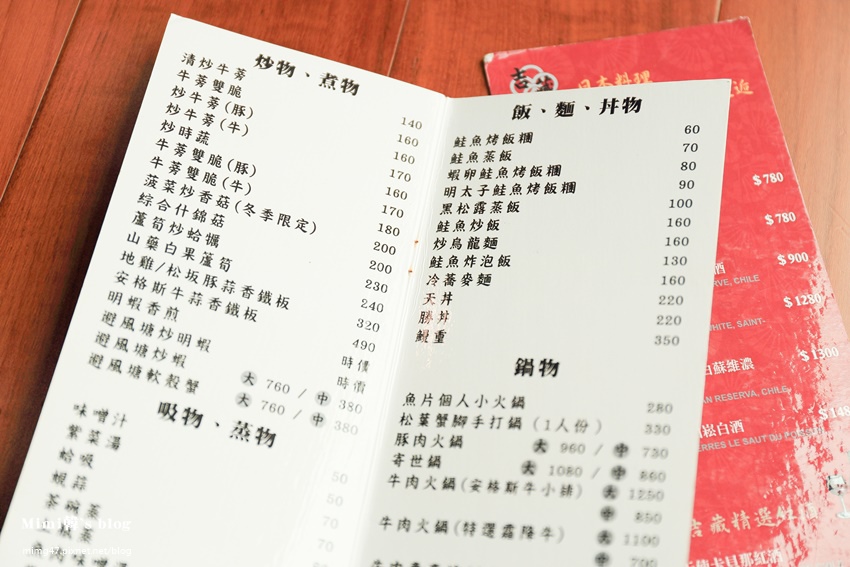 炒物、煮物
清炒牛蒡 140
牛蒡雙脆 160
炒牛蒡(豚) 160
炒牛蒡(牛) 170
炒時蔬 160
牛蒡雙脆(豚) 170
牛蒡雙脆(牛) 180
菠菜炒香菇(冬季限定) 200
綜合什錦菇 200
蘆筍炒蛤蠣 230
山藥白果蘆筍 240
地雞/松坂豚蒜香鐵板 320
安格斯牛蒜香鐵板 490
明蝦香煎 時價
避風塘炒明蝦 時價
避風塘炒蝦 大 760 / 中 380
避風塘軟殼蟹 大 760 / 中 380
吸物、蒸物
味噌汁 50
紫菜湯 50
蛤吸 70
蝦蒜
茶碗蒸
飯、麵、丼物
鮭魚烤飯糰 60
鮭魚蒸飯 70
蝦卵鮭魚烤飯糰 80
明太子鮭魚烤飯糰 90
黑松露蒸飯 100
鮭魚炒飯 160
炒烏龍麵 160
鮭魚炸泡飯 130
冷蕎麥麵 160
天丼 220
勝丼 220
鰻重 350
鍋物
魚片個人小火鍋 280
松葉蟹腳手打鍋 (1人份) 330
豚肉火鍋 大 960 / 中 730
寄世鍋 大 1080 / 中 860
牛肉火鍋(安格斯牛小排) 大 1250
中 850
牛肉火鍋(特選霜降牛) 大 1100
中 700
日本料理
$780
$780
$900
酒
ERVE, CHILE
$1280
WHITE, SAINT-
$1300
白蘇維濃
AN RESERVA, CHILE
崧白酒
ERRES LE SAUT DU POISSON
吉藏精選紅酒
卡貝那紅酒
Mimi韓's blog